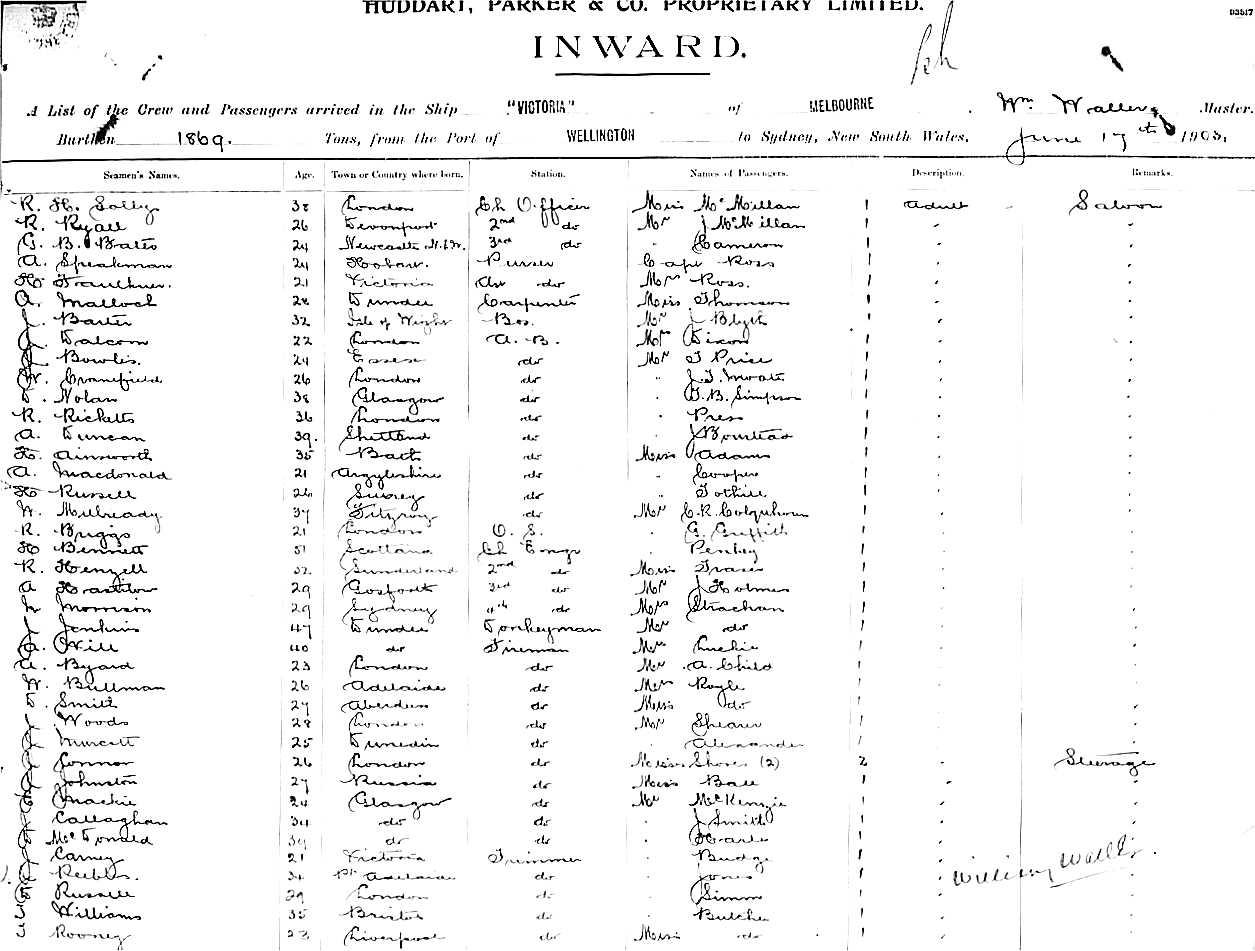 HUDDART, PARKER & CO. PROPRIETARY LIMITED.
03517
INWARD.
A List of the Crew and Passengers arrived in the Ship "VICTORIA" of MELBOURNE . Wm Waller, Master.
Burthen 1869. Tons, from the Port of WELLINGTON to Sydney, New South Wales, June 17th 1903.
Seamen's Names. Age. Town or Country where born. Station. Names of Passengers. Description. Remarks.
R. H. Solly 38 London Ch Officer Miss McMillan 1 Adult Saloon
R. Ryall 26 Devonport 2nd do Mr J McMillan 1 " "
G. B. Bates 24 Newcastle 3rd do " Cameron 1 " "
A. Speakman 24 Hobart. Purser Capt Ross 1 " "
H Faulkner. 21 Victoria do Mrs Ross. 1 " "
A. Malloch 28 Dundee Carpenter Miss Thomson 1 " "
J. Baxter 32 Isle of Wight Bos. Mr J Blyth 1 " "
J. Dalcom 22 London A. B. Mr Dixon 1 " "
J Bowlis. 24 Essex do Mr T Price 1 " "
W. Cranefield 26 London do " 1 " "
D. Nolan 38 Glasgow do " Simpson 1 " "
R. Ricketts 36 London do " Press 1 " "
A. Duncan 39. Shetland do " 1 " "
H. Ainsworth 35 Bath do Miss Adams 1 " "
A. Macdonald 21 Argyleshire do " Cooper 1 " "
H Russell 26 Surrey do " Tothill 1 " "
W. Mulready 37 Fitzroy do Mr C. R. Colquhoun 1 " "
R. Briggs 21 London O. S. " G. Griffith 1 " "
H Bennett 51 Scotland Ch Engr " 1 " "
R. Henzell 32 Sunderland 2nd do Miss Fraser 1 " "
A 29 Gosforth 3rd do Mr J Holmes 1 " "
Morrison 29 Sydney 4th do Mrs Strachan 1 " "
J Jenkins 47 Dundee Donkeyman Mr do 1 " "
Will 40 do Fireman Mr Luckie 1 " "
A. Byard 23 London do Mr A. Child 1 " "
W. Bullman 26 Adelaide do Mrs Royle 1 " "
D. Smith 27 Aberdeen do Miss do 1 " "
J Woods 28 London do Mr Shearer 1 " "
J 25 Dunedin do " Alexander 1 " "
J Connor 26 London do Misses Shores (2) 2 " Steerage
J Johnston 27 Russia do Miss Ball 1 " "
Mackie 24 Glasgow do Mr McKenzie 1 " "
J Callaghan 34 do do " J Smith 1 " "
McDonald 39 do do " Earle 1 " "
J Carney 21 Victoria Trimmer " Budge 1 " "
J Peebles. 34 Pt Adelaide do " Jones 1 "
Russell 29 London do " Simm 1 " "
J Williams 35 Bristol do " Butcher 1 " "
J Rooney 23 Liverpool do Miss do 1 " "